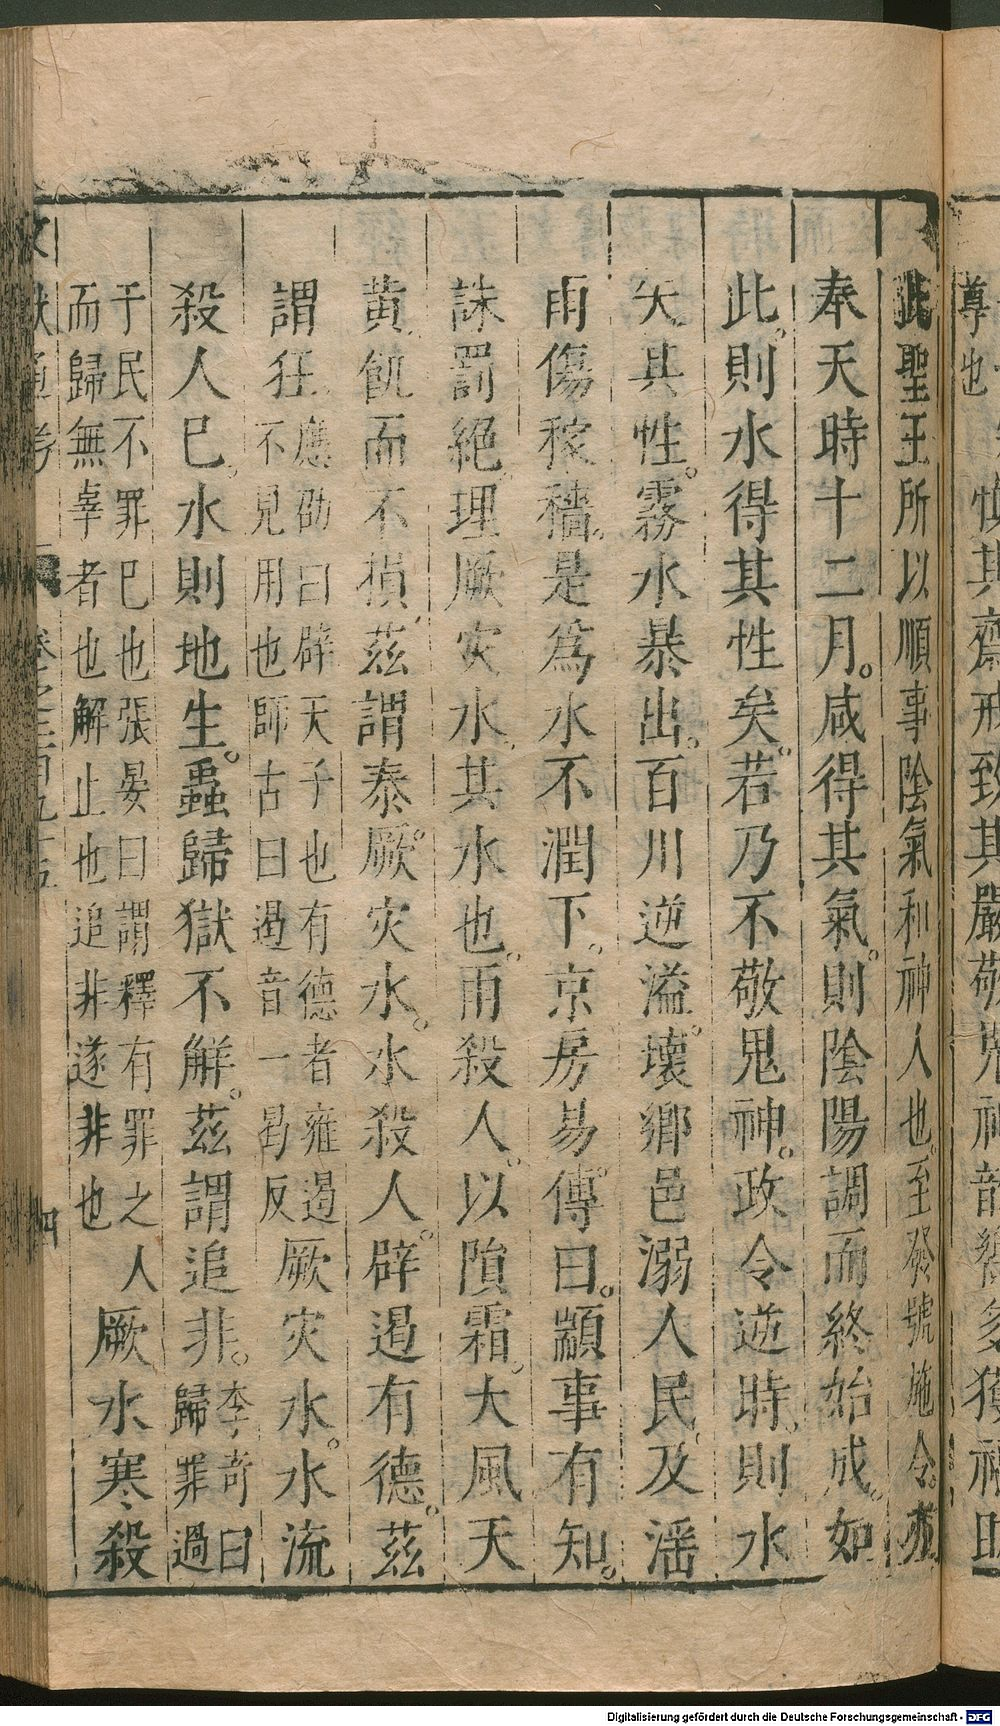 愼其齋戒致其嚴敬鬼神韶饗多獲福助
尊也
此聖王所以順事陰氣和神人也。至發號施令。亦
奉天時十二月。咸得其氣。則陰陽調而終始成。如
此。則水得其性矣。若乃不敬鬼神。政令逆時。則水
失其性。霧水暴出。百川逆溢。壞鄉邑溺人民。及淫
雨傷稼穡。是爲水不潤下。京房易傳曰。顓事有知。
誅罰絕理。厥灾水。其水也。雨殺人。以隕霜。大風天
黃。飢而不損。茲謂泰。厥灾水。水殺人。辟遏有德。茲
謂狂。應劭曰辟天子也有德者雍遏
不見用也師古曰遏音一曷反厥灾水。水流
殺人巳。水則地生。蟲歸獄不解。茲謂追非。李竒曰
歸罪過
于民不罪巳也張晏曰謂釋有罪之人
而歸無辜者也解止也追非遂非也厥水寒殺
文獻通考 卷之二百九十五 四
Digitalisierung gefördert durch die Deutsche Forschungsgemeinschaft - DFG